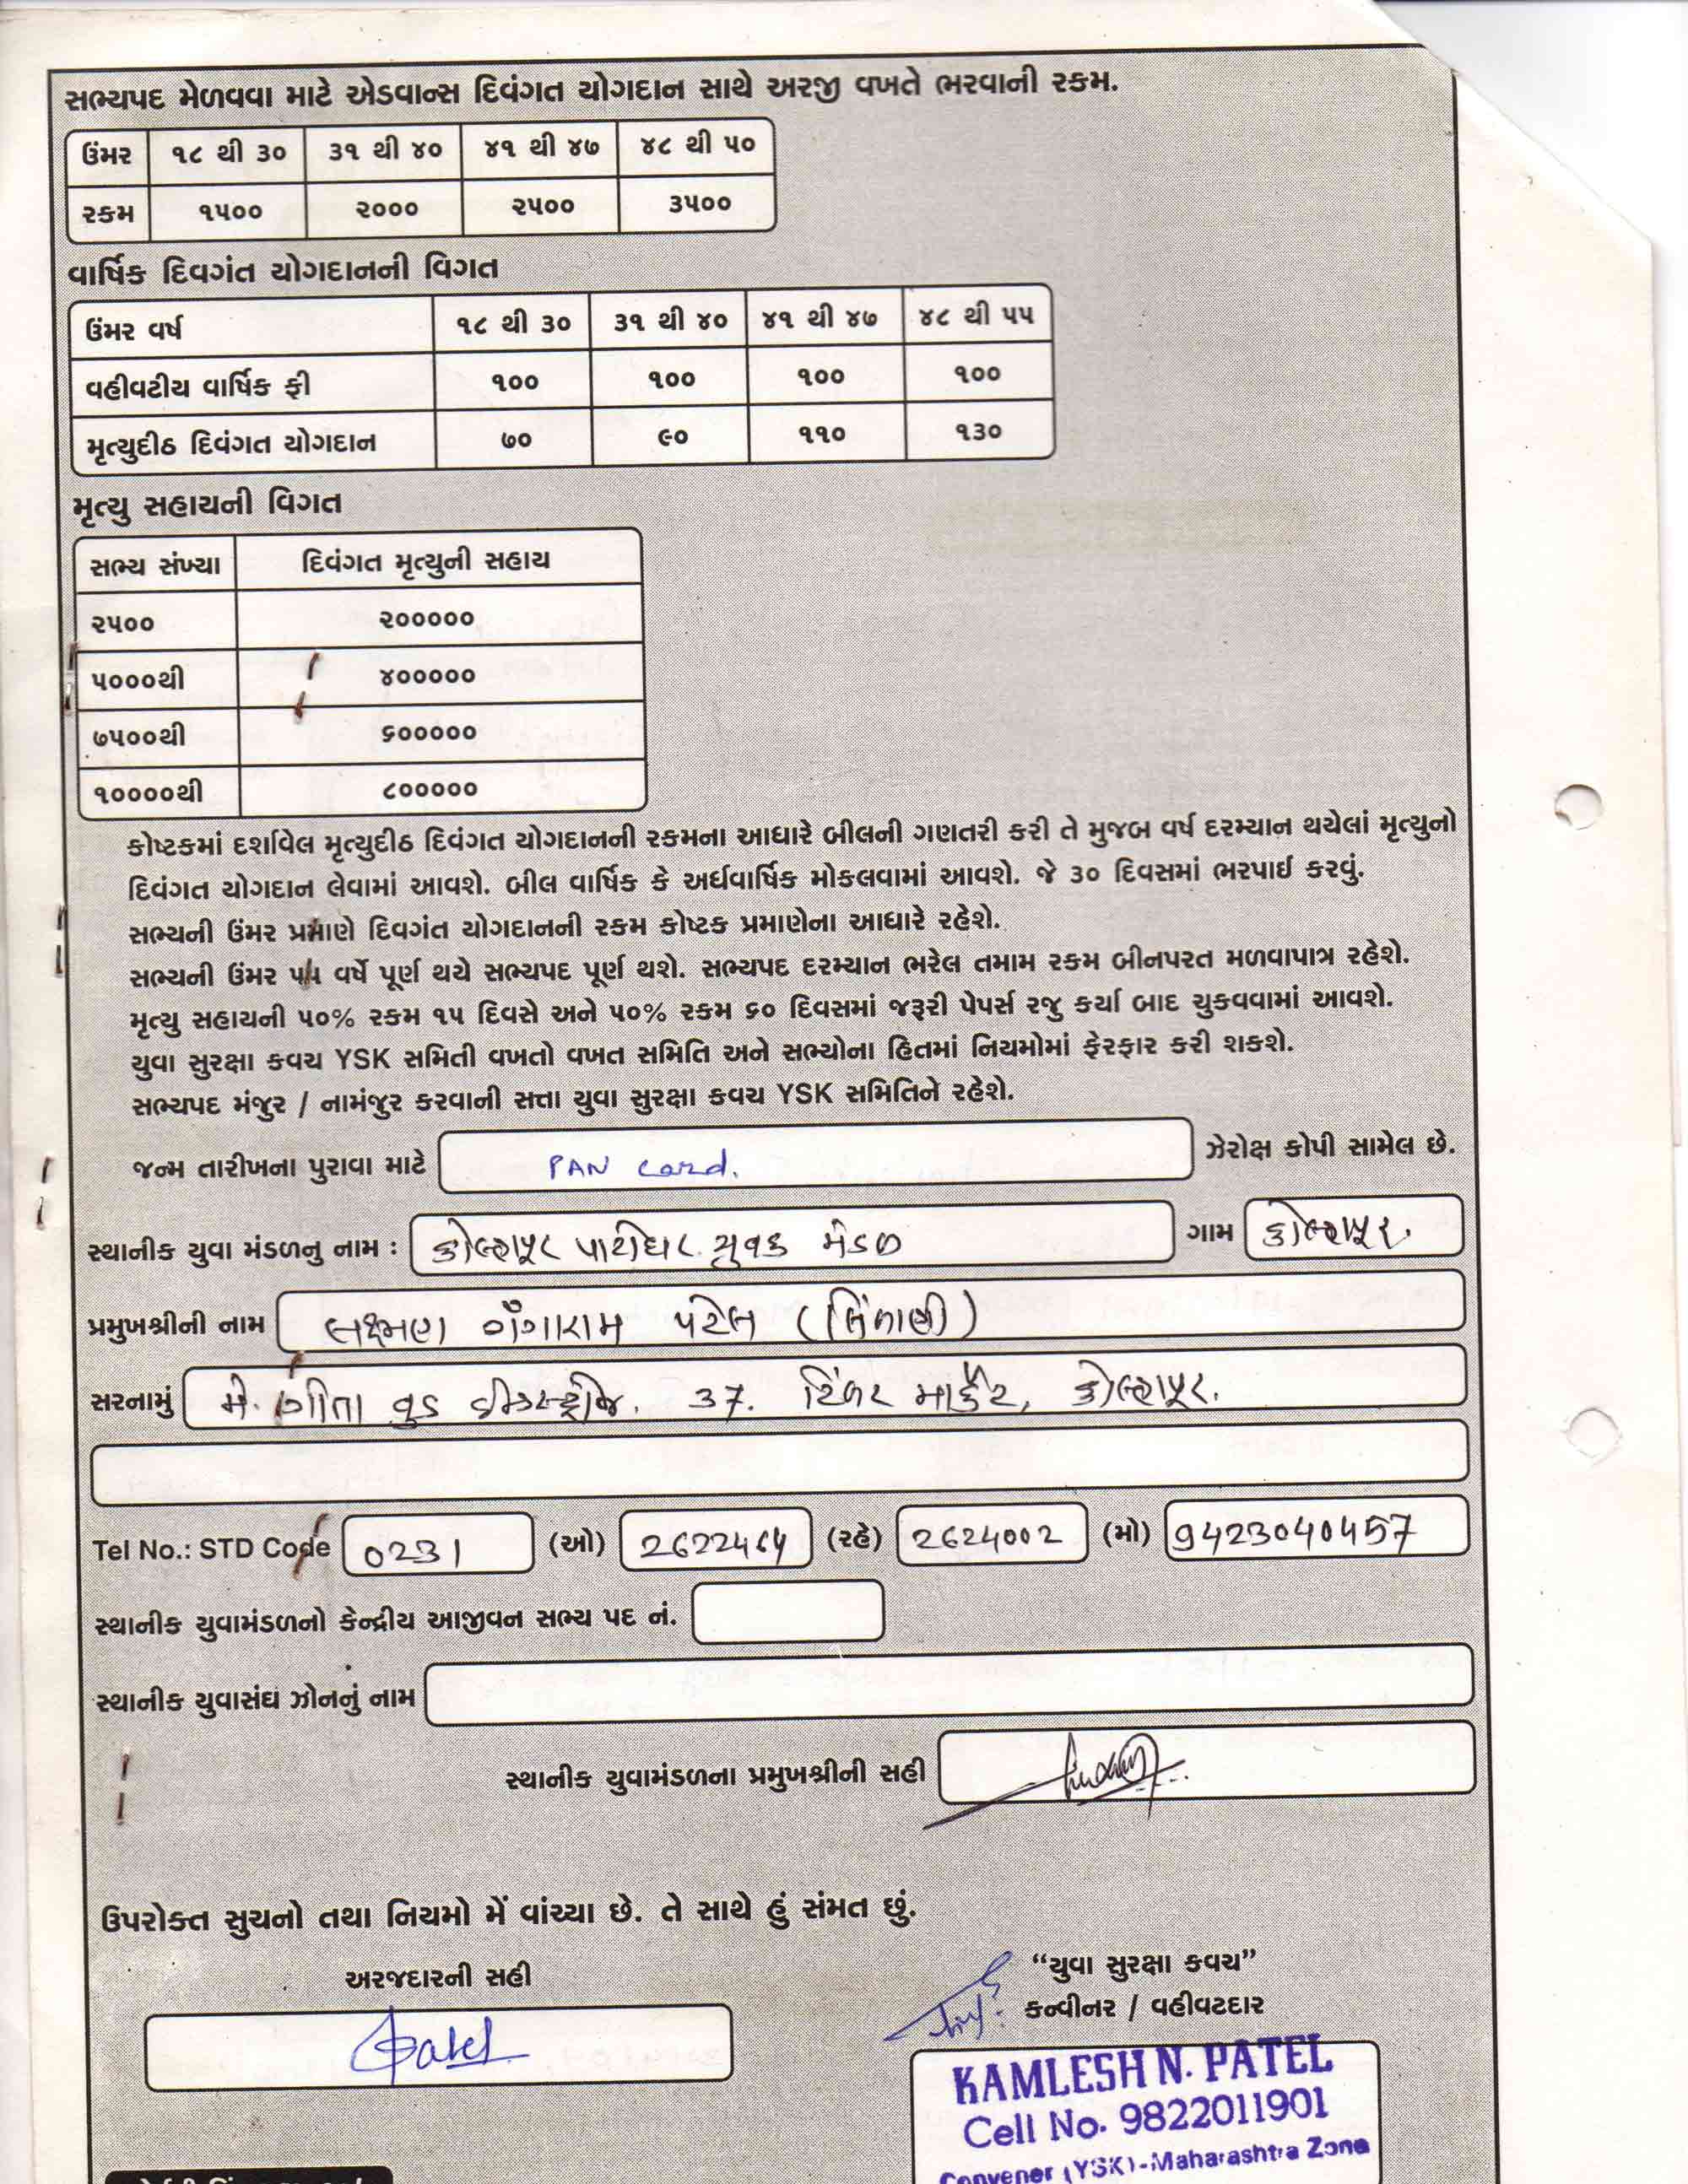 સભ્યપદ મેળવવા માટે એડવાન્સ દિવંગત યોગદાન સાથે અરજી વખતે ભરવાની રકમ.
ઉંમર ૧૮ થી ૩૦ ૩૧ થી ૪૦ ૪૧ થી ૪૭ ૪૮ થી ૫૦
રકમ ૧૫૦૦ ૨૦૦૦ ૨૫૦૦ ૩૫૦૦
વાર્ષિક દિવગંત યોગદાનની વિગત
ઉંમર વર્ષ ૧૮ થી ૩૦ ૩૧ થી ૪૦ ૪૧ થી ૪૭ ૪૮ થી ૫૫
વહીવટીય વાર્ષિક ફી ૧૦૦ ૧૦૦ ૧૦૦ ૧૦૦
મૃત્યુદીઠ દિવંગત યોગદાન ૭૦ ૯૦ ૧૧૦ ૧૩૦
મૃત્યુ સહાયની વિગત
સભ્ય સંખ્યા દિવંગત મૃત્યુની સહાય
૨૫૦૦ ૨૦૦૦૦૦
૫૦૦૦થી ૪૦૦૦૦૦
૭૫૦૦થી ૬૦૦૦૦૦
૧૦૦૦૦થી ૮૦૦૦૦૦
કોષ્ટકમાં દર્શાવેલ મૃત્યુદીઠ દિવંગત યોગદાનની રકમના આધારે બીલની ગણતરી કરી તે મુજબ વર્ષ દરમ્યાન થયેલાં મૃત્યુનો
દિવંગત યોગદાન લેવામાં આવશે. બીલ વાર્ષિક કે અર્ધવાર્ષિક મોકલવામાં આવશે. જે ૩૦ દિવસમાં ભરપાઈ કરવું.
સભ્યની ઉંમર પ્રમાણે દિવગંત યોગદાનની રકમ કોષ્ટક પ્રમાણેના આધારે રહેશે.
સભ્યની ઉંમર ૫૫ વર્ષે પૂર્ણ થયે સભ્યપદ પૂર્ણ થશે. સભ્યપદ દરમ્યાન ભરેલ તમામ રકમ બીનપરત મળવાપાત્ર રહેશે.
મૃત્યુ સહાયની ૫૦% રકમ ૧૫ દિવસે અને ૫૦% રકમ ૬૦ દિવસમાં જરૂરી પેપર્સ રજુ કર્યા બાદ ચુકવવામાં આવશે.
યુવા સુરક્ષા કવચ YSK સમિતી વખતો વખત સમિતિ અને સભ્યોના હિતમાં નિયમોમાં ફેરફાર કરી શકશે.
સભ્યપદ મંજુર / નામંજુર કરવાની સત્તા યુવા સુરક્ષા કવચ YSK સમિતિને રહેશે.
જન્મ તારીખના પુરાવા માટે PAN card. ઝેરોક્ષ કોપી સામેલ છે.
સ્થાનીક યુવા મંડળનુ નામ : કોલ્હાપૂર પાટીદાર યુવક મંડળ ગામ કોલ્હાપૂર.
પ્રમુખશ્રીની નામ લક્ષ્મણ ગંગારામ પટેલ (લિંબાણી)
સરનામું મે. ગીતા વુડ ઈન્ડસ્ટ્રીજ. 37. ટિંબર માર્કેટ, કોલ્હાપૂર.
Tel No.: STD Code 0231 (ઓ) 2622464 (રહે) 2624002 (મો) 9423040457
સ્થાનીક યુવામંડળનો કેન્દ્રીય આજીવન સભ્ય પદ નં.
સ્થાનીક યુવાસંઘ ઝોનનું નામ
સ્થાનીક યુવામંડળના પ્રમુખશ્રીની સહી
ઉપરોક્ત સુચનો તથા નિયમો મેં વાંચ્યા છે. તે સાથે હું સંમત છું.
અરજદારની સહી
Patel
“યુવા સુરક્ષા કવચ”
કન્વીનર / વહીવટદાર
KAMLESH N. PATEL
Cell No. 9822011901
Convener (YSK)-Maharashtra Zone